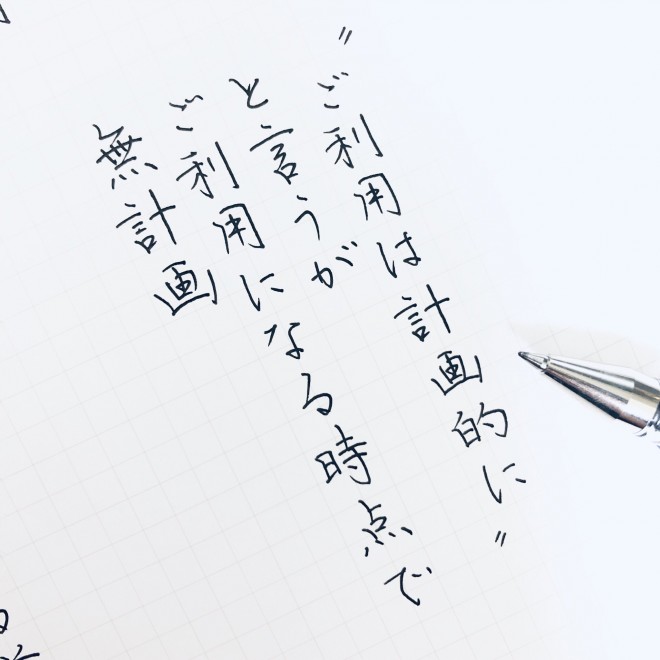 "ご利用は計画的に"
と言うが
ご利用になる時点で
無計画